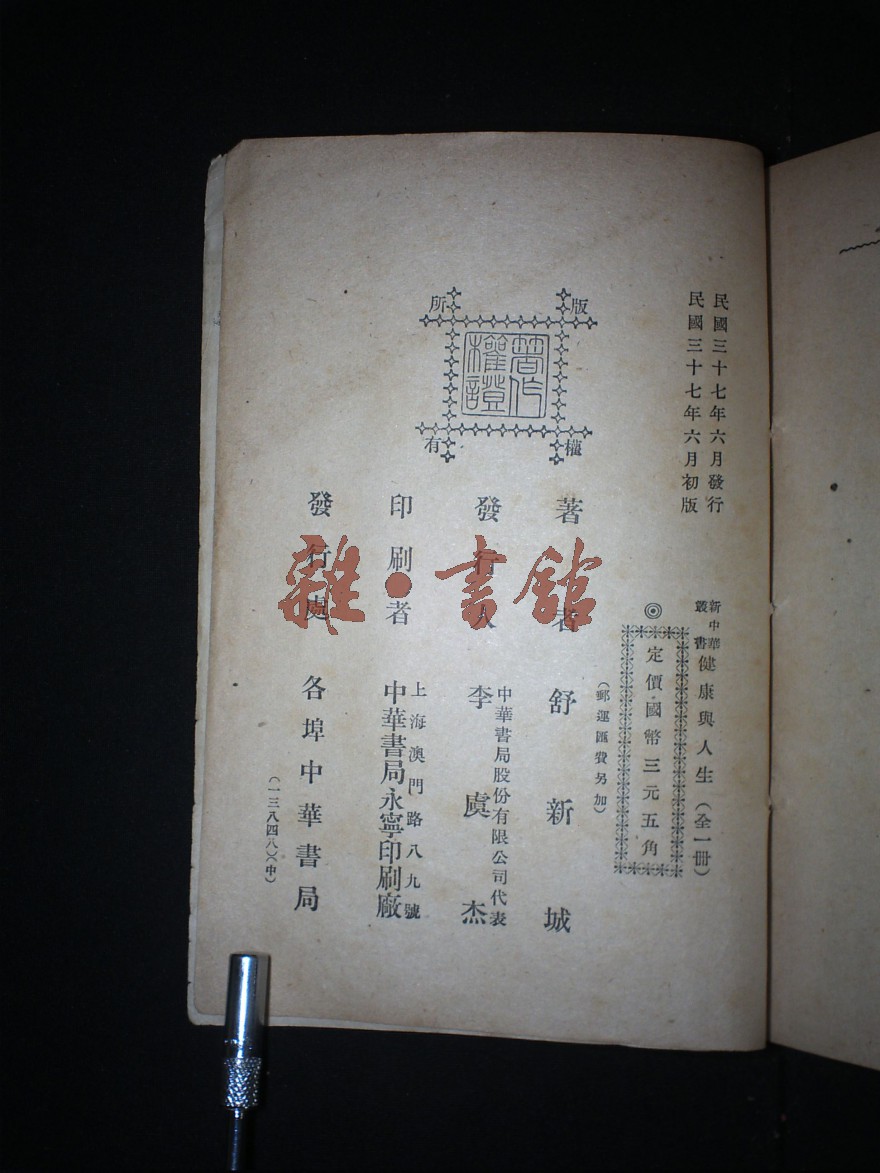 民國三十七年六月發行
民國三十七年六月初版
新中華
叢書
健康與人生（全一冊）
◎定價國幣三元五角
（郵運匯費另加）
版權所有
著作權證
著者 舒新城
發行人
中華書局股份有限公司代表
李虞杰
印刷者
上海澳門路八九號
中華書局永寧印刷廠
發行處 各埠中華書局
（一三八四八）（中）
雜·書館